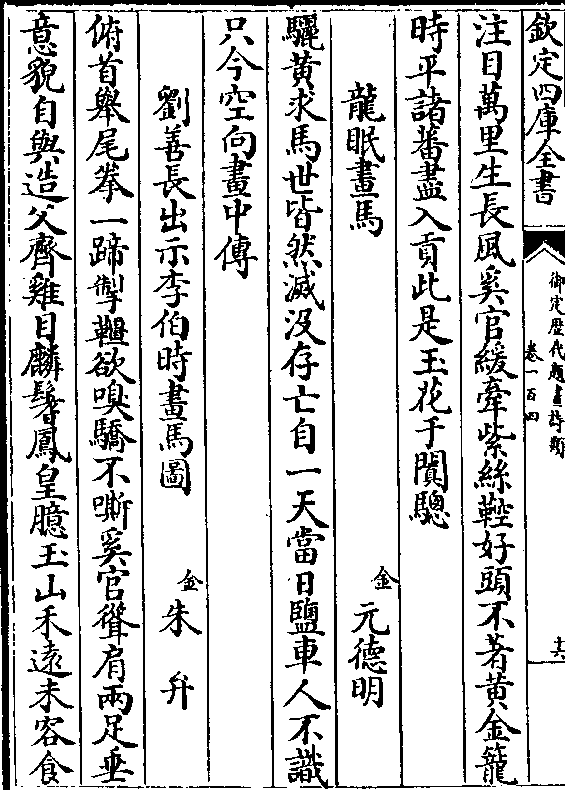 欽定四庫全書
御定歴代題畫詩類
卷一百四
十六
注目萬里生長風奚官緩牽紫絲鞚好頭不著黄金籠
時平諸蕃盡入貢此是玉花于闐驄
龍眠畫馬
金 元德明
驪黄求馬世皆然滅没存亡自一天當日鹽車人不識
只今空向畫中傳
劉善長出示李伯時畫馬圖
金 朱弁
俯首舉尾拳一蹄掣韁欲嗅驕不嘶奚官聳肩兩足垂
意貌自與造父齊雞目麟鬐鳳皇臆玉山禾遠未容食